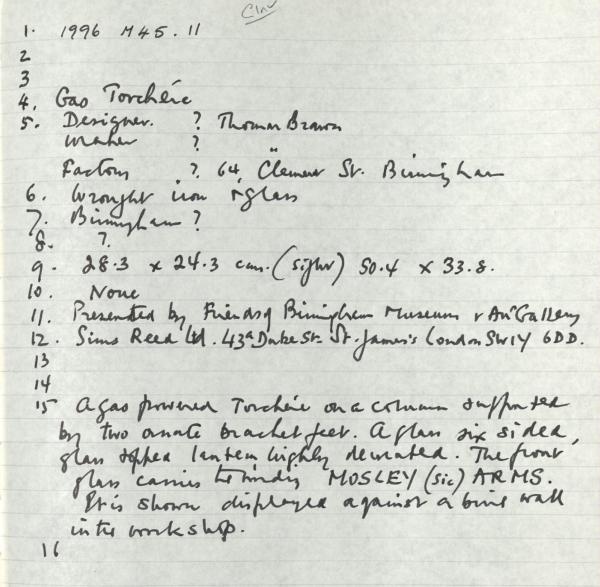 1. 1996 M45.11
2
3
4. Gas Torchère
5. Designer. ? Thomas Brawn
Maker ? "
Factory ? 64, Clement St. Birmingham
6. Wrought iron + glass
7. Birmingham ?
8. ?
9. 28.3 x 24.3 cms. (sight) 50.4 x 33.8.
10. None
11. Presented by Friends of Birmingham Museum & Art Gallery
12. Sims Reed Ltd. 43a Duke St. St. James's London SW1Y 6DD.
13
14
15 A gas powered Torchère on a column supported
by two ornate bracket feet. A glass six sided,
glass topped lantern highly decorated. The front
glass carries the words MOSLEY (sic) ARMS.
It is shown displayed against a brick wall
in the workshop.
16